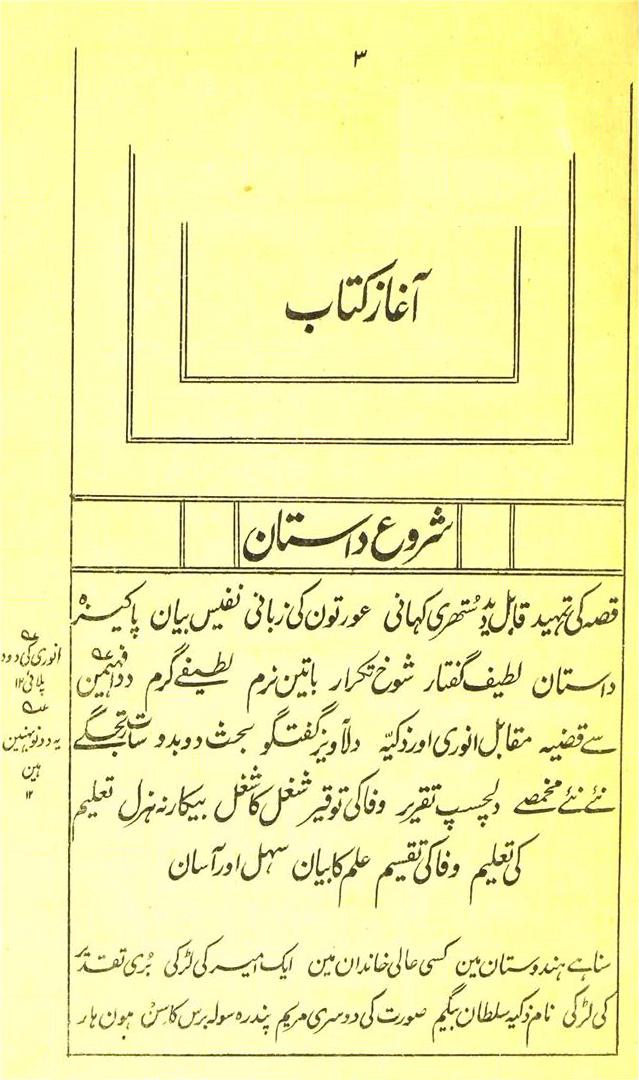 ۳
آغاز کتاب
شروع داستان
قصہ کی تمہید قابل دید ستھری کہانی عورتون کی زبانی نفیس بیان پاکیزہ
داستان لطیف گفتار شوخ تکرار باتین نرم لطیفے گرم ددا فہمین
سے قضیہ مقابل انوری اور ذکیہ دلآویز گفتگو بحث دوبدو سات رتجگے
نئے نئے مخمصے دلچسپ تقریر وفا کی توقیر شغل کا شغل بیکار نہ ہزل تعلیم
کی تعلیم وفا کی تقسیم علم کا بیان سہل اور آسان
سنا ہے ہندوستان مین کسی عالی خاندان مین ایک امیر کی لڑکی بڑی تقدیر
کی لڑکی نام ذکیہ سلطان بیگم صورت کی دوسری مریم پندرہ سولہ برس کا سن ہون ہار
انوری کی دود
پلائی ۱۲
یہ دونو بہنین
ہین
۱۲